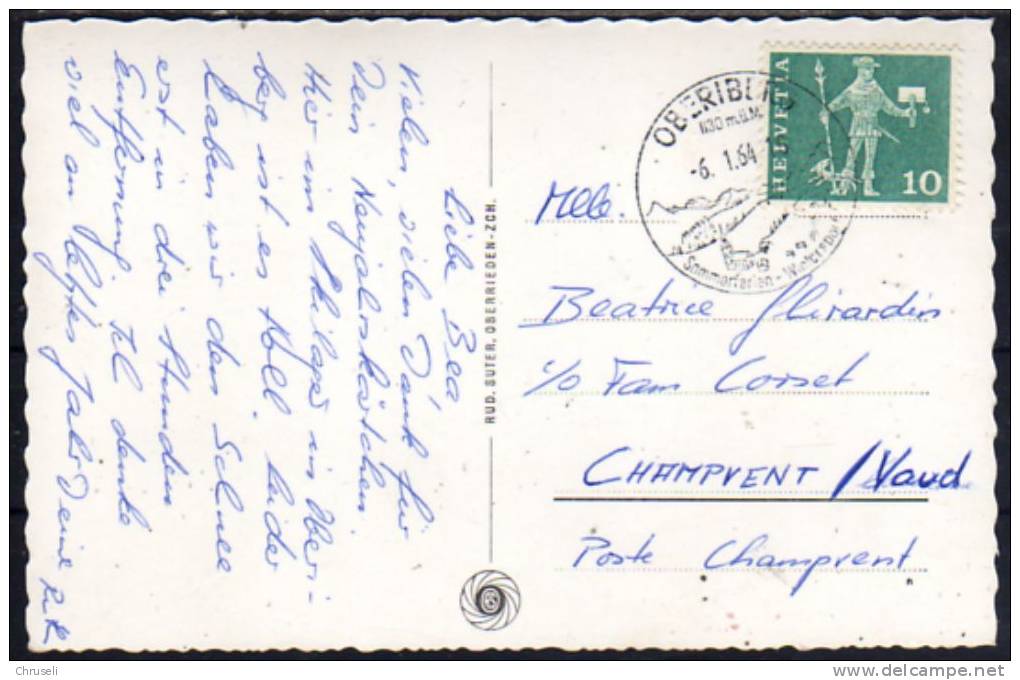 Liebe Bea,
Vielen, vielen Dank für
Dein Neujahrskärtchen.
Hier im Skilager in Oberi-
berg ist es toll. Leider
haben wir den Schnee
erst in drei Stunden
Entfernung. Ich denke
viel an letztes Jahr Deine
RUD. SUTER, OBERRIEDEN-ZCH.
OBERIBERG
1130 m.ü.M.
-6. 1.64
Sommerferien - Wintersport
HELVETIA
10
Mlle.
Beatrice Girardin
c/o Fam Corset
CHAMPVENT / Vaud
Poste Champvent
Chruseli
www.delcampe.net